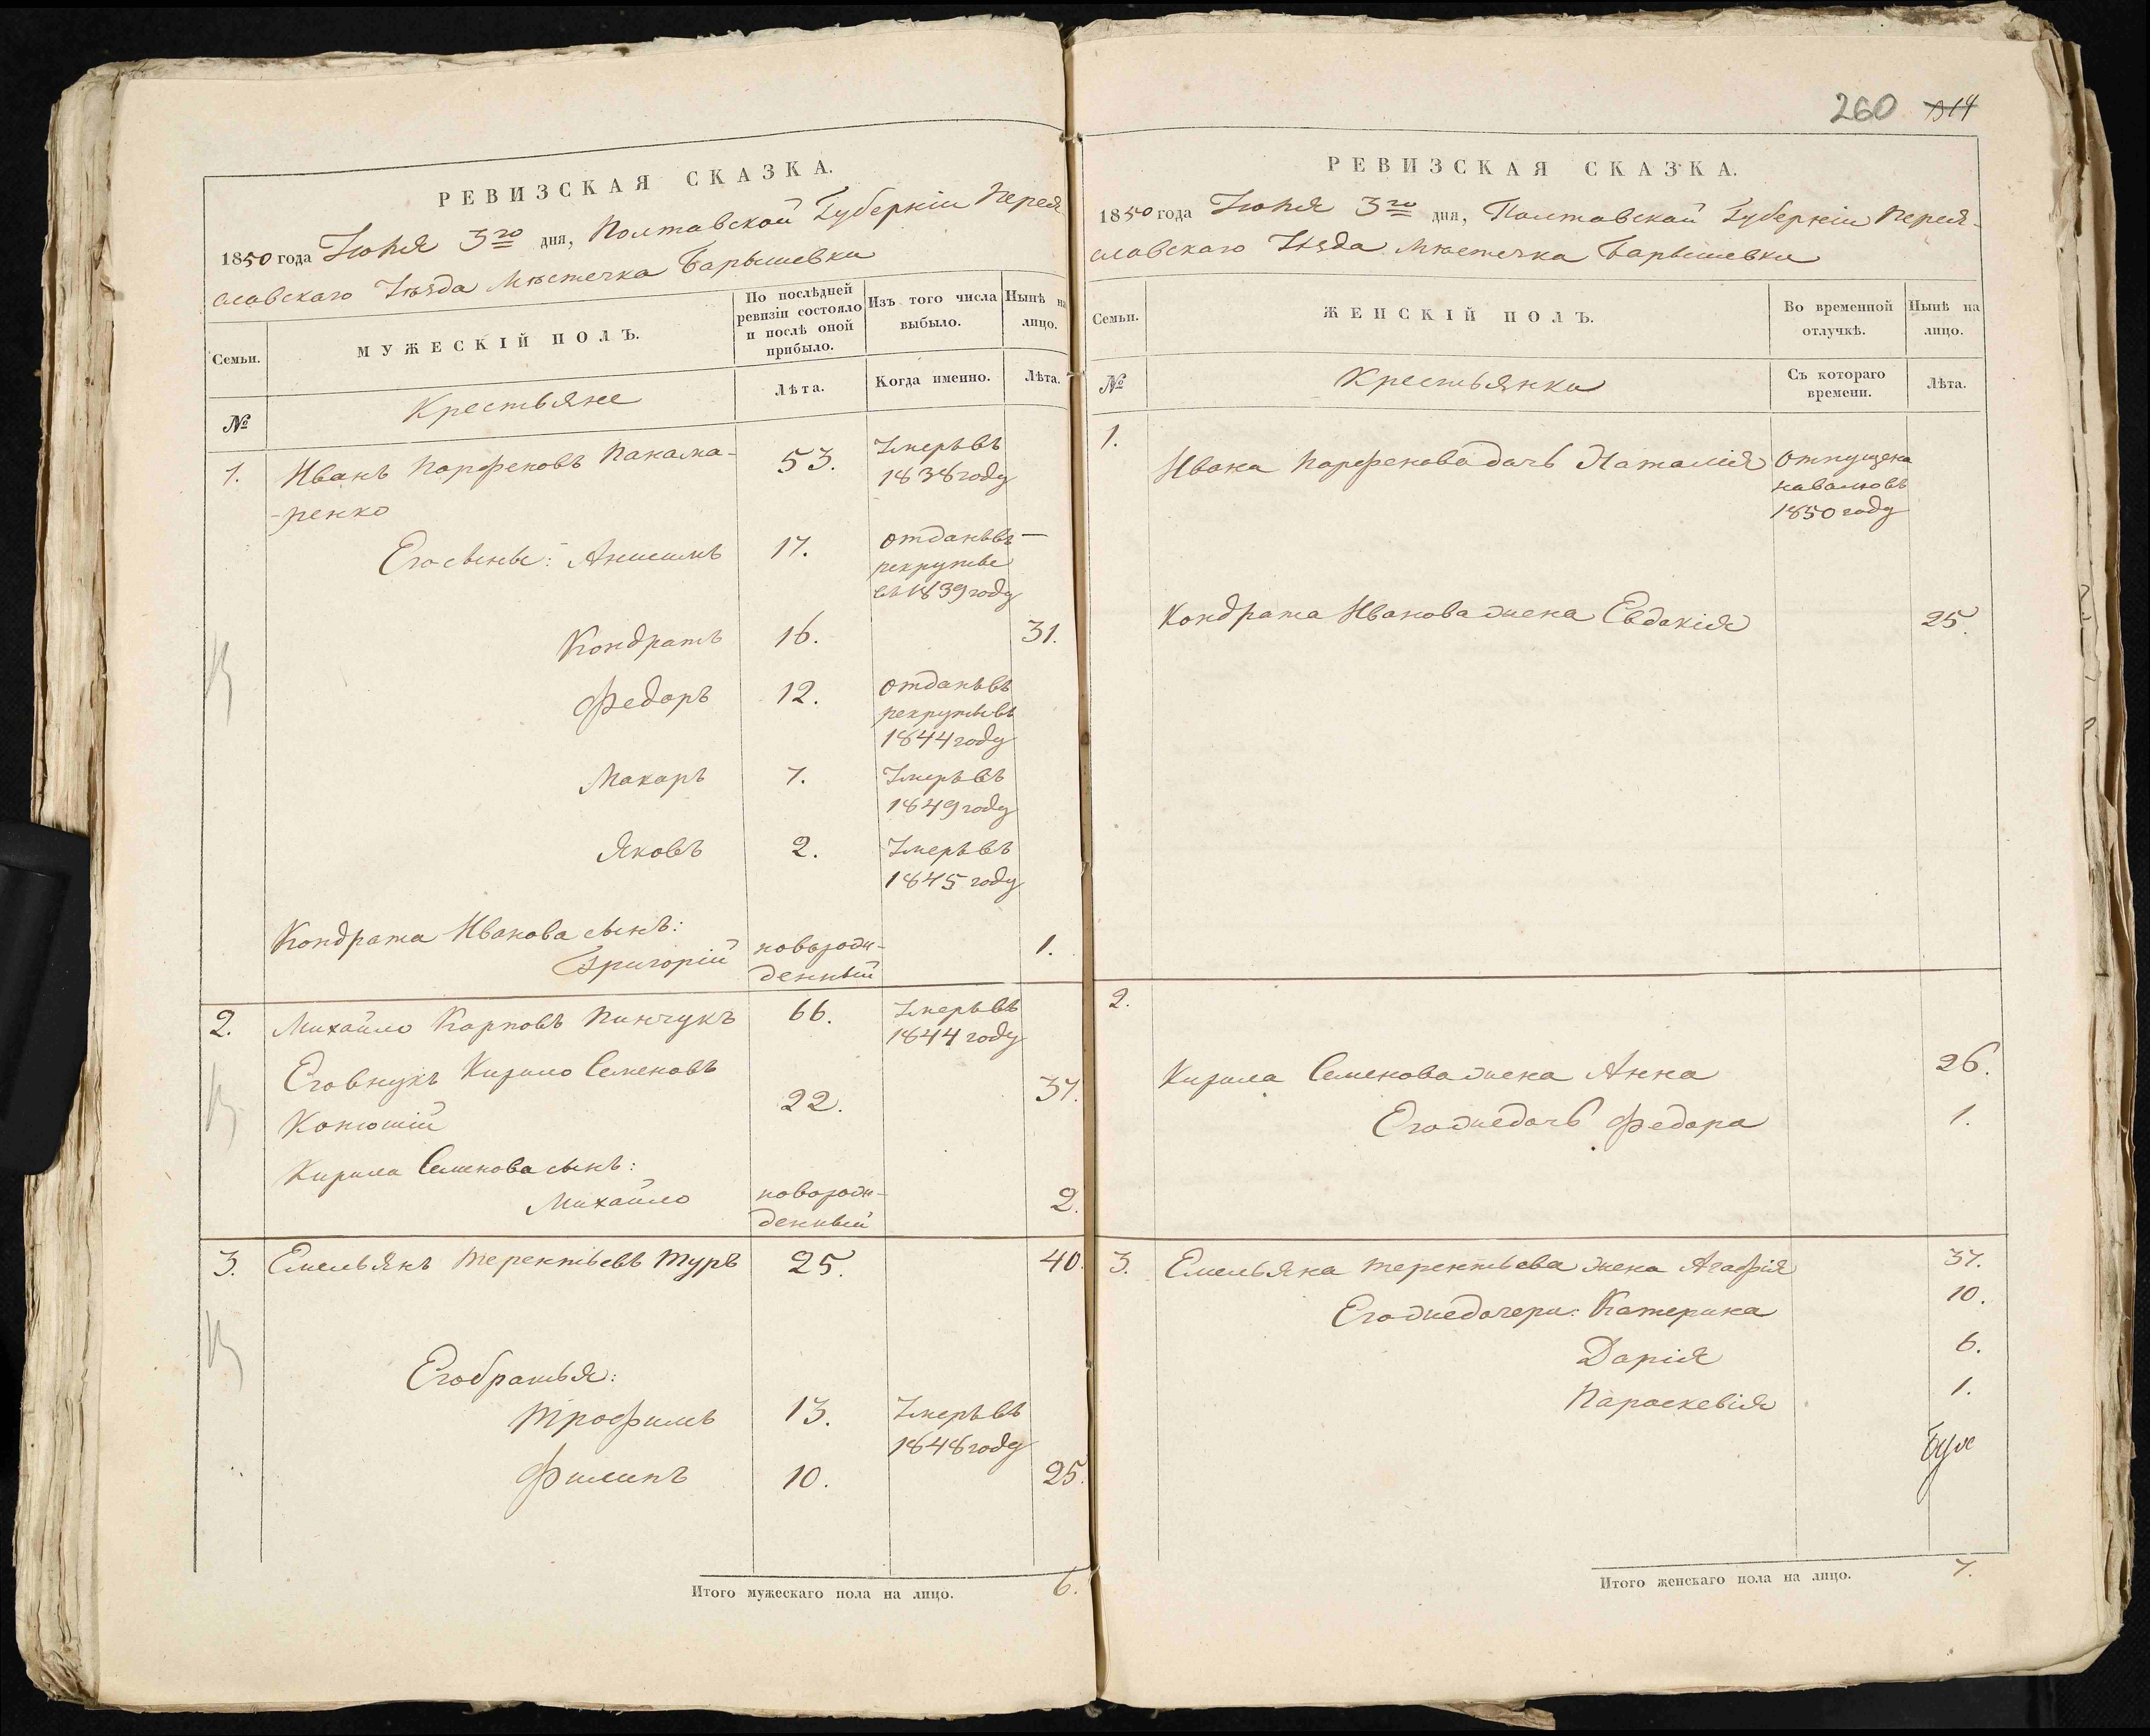 РЕВИЗСКАЯ СКАЗКА.
1850 года Іюня 3го дня, Полтавской Губерніи Перея
славскаго Уѣзда Мѣстечка Барышевки
Семьи.
МУЖЕСКІЙ ПОЛЪ.
По послѣдней ревизіи состояло и послѣ оной прибыло.
Изъ того числа выбыло.
Нынѣ на лицо.
№
Крестьяне
Лѣта.
Когда именно.
Лѣта.
1. Иванъ Парфеновъ Панама- 53. Умеръ въ
-ренко 1838 году
Его сыны: Анисимъ 17. отданъ въ
рекруты
въ 1839 году
Кондратъ 16. 31.
Федоръ 12. отданъ въ
рекруты въ
1844 году
Макаръ 7. Умеръ въ
1849 году
Яковъ 2. Умеръ въ
1845 году
Кондрата Иванова сынъ:
Григорій новорож-
денный 1.
2. Михайло Карповъ Пинчукъ 66. Умеръ въ
1844 году
Его внукъ Кирило Семеновъ
Конюшій 22. 37.
Кирила Семенова сынъ:
Михайло новорож-
денный 2.
3. Емельянъ Терентьевъ Туръ 25. 40.
Его братья:
Трофимъ 13. Умеръ въ
1848 году
Филипъ 10. 25.
Итого мужескаго пола на лицо. 6.
260 314
РЕВИЗСКАЯ СКАЗКА.
1850 года Іюня 3го дня, Полтавской Губерніи Перея-
славскаго Уѣзда Мѣстечка Барышевки
Семьи.
ЖЕНСКІЙ ПОЛЪ.
Во временной отлучкѣ.
Нынѣ на лицо.
№
Крестьянки
Съ котораго времени.
Лѣта.
1.
Ивана Парфенова дочь Наталія Отпущена
на волю въ
1850 году
Кондрата Иванова жена Евдокія 25.
2.
Кирила Семенова жена Анна 26.
Его же дочь Федора 1.
3. Емельяна Терентьева жена Агафія 37.
Его же дочери: Катерина 10.
Дарія 6.
Параскевія 1.
Итого женскаго пола на лицо. 7.